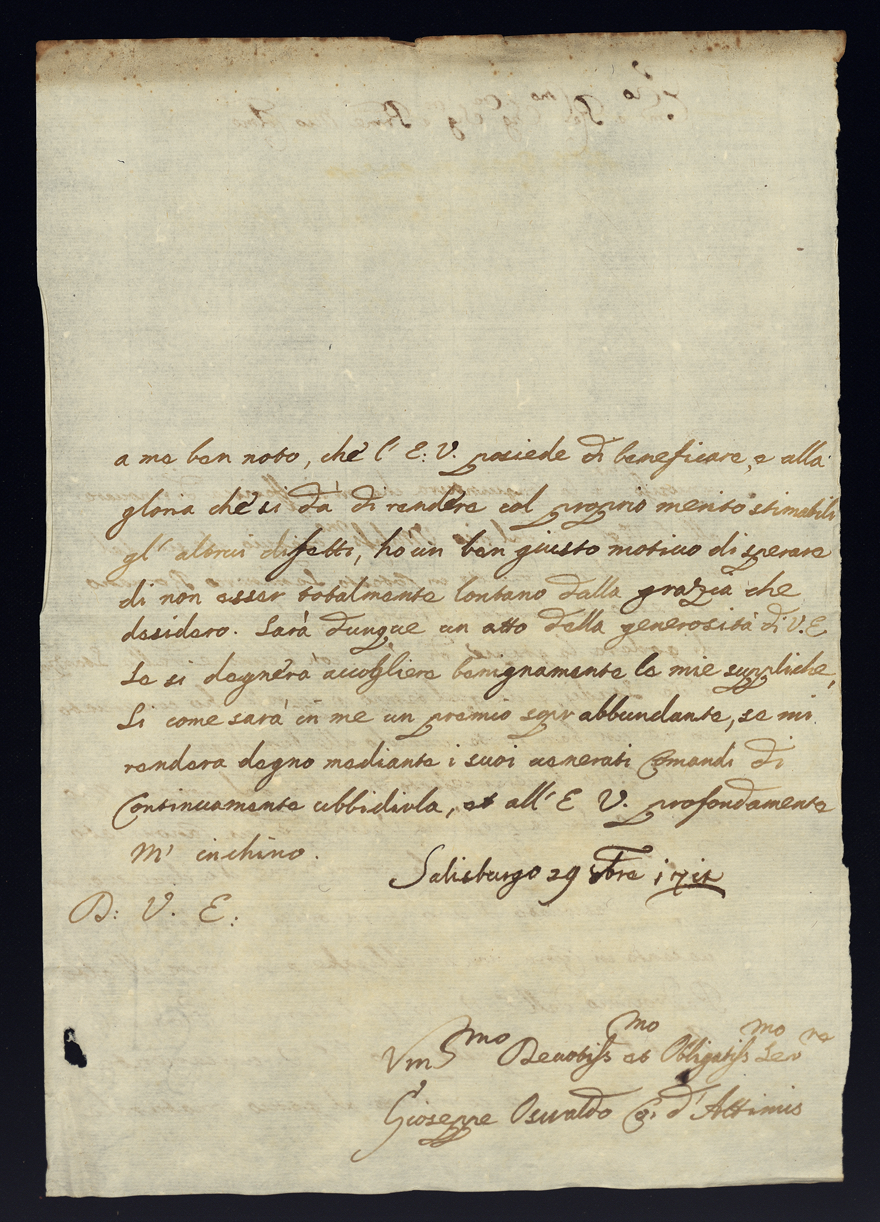 a me ben noto, che l' E: V. posiede di beneficare, e alla
gloria che si dà di rendere col proprio merito stimabili
gl' altrui difetti, ho un ben giusto motivo di sperare
di non esser totalmente lontano dalla grazia che
desidero. Sarà dunque un atto della generosità di V. E
Se si degnerà accogliere benignamente le mie suppliche,
Si come sarà in me un premio soprabbundante, se mi
renderà degno mediante i suoi venerati Comandi di
Continuamente ubbidirla, et all' E V. profondamente
M' inchino.
Salisburgo 29 8bre
D: V. E:
Vmo Devotiss mo et Obligatiss mo Ser re
Gioseppe Osvaldo Co: d' Attimis